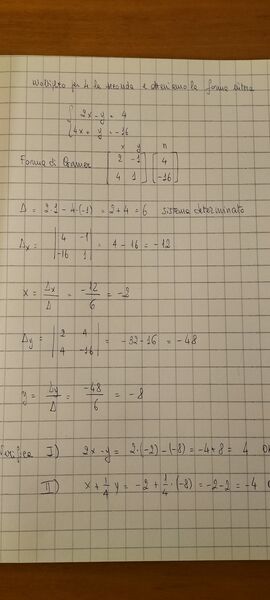 moltiplico per 4 la seconda e otteniamo la forma intera
{ 2x - y = 4
4x + y = -16
x y n
Forma di Cramer [ 2 -1 ] [ 4 ]
[ 4 1 ] [ -16 ]
Δ = 2·1 - 4·(-1) = 2 + 4 = 6 sistema determinato
Δx = | 4 -1 | = 4 - 16 = -12
| -16 1 |
x = Δx/Δ = -12/6 = -2
Δy = | 2 4 | = -32 - 16 = -48
| 4 -16 |
y = Δy/Δ = -48/6 = -8
Verifica I) 2x - y = 2·(-2) - (-8) = -4 + 8 = 4
II) x + 1/4 y = -2 + 1/4·(-8) = -2 - 2 = -4